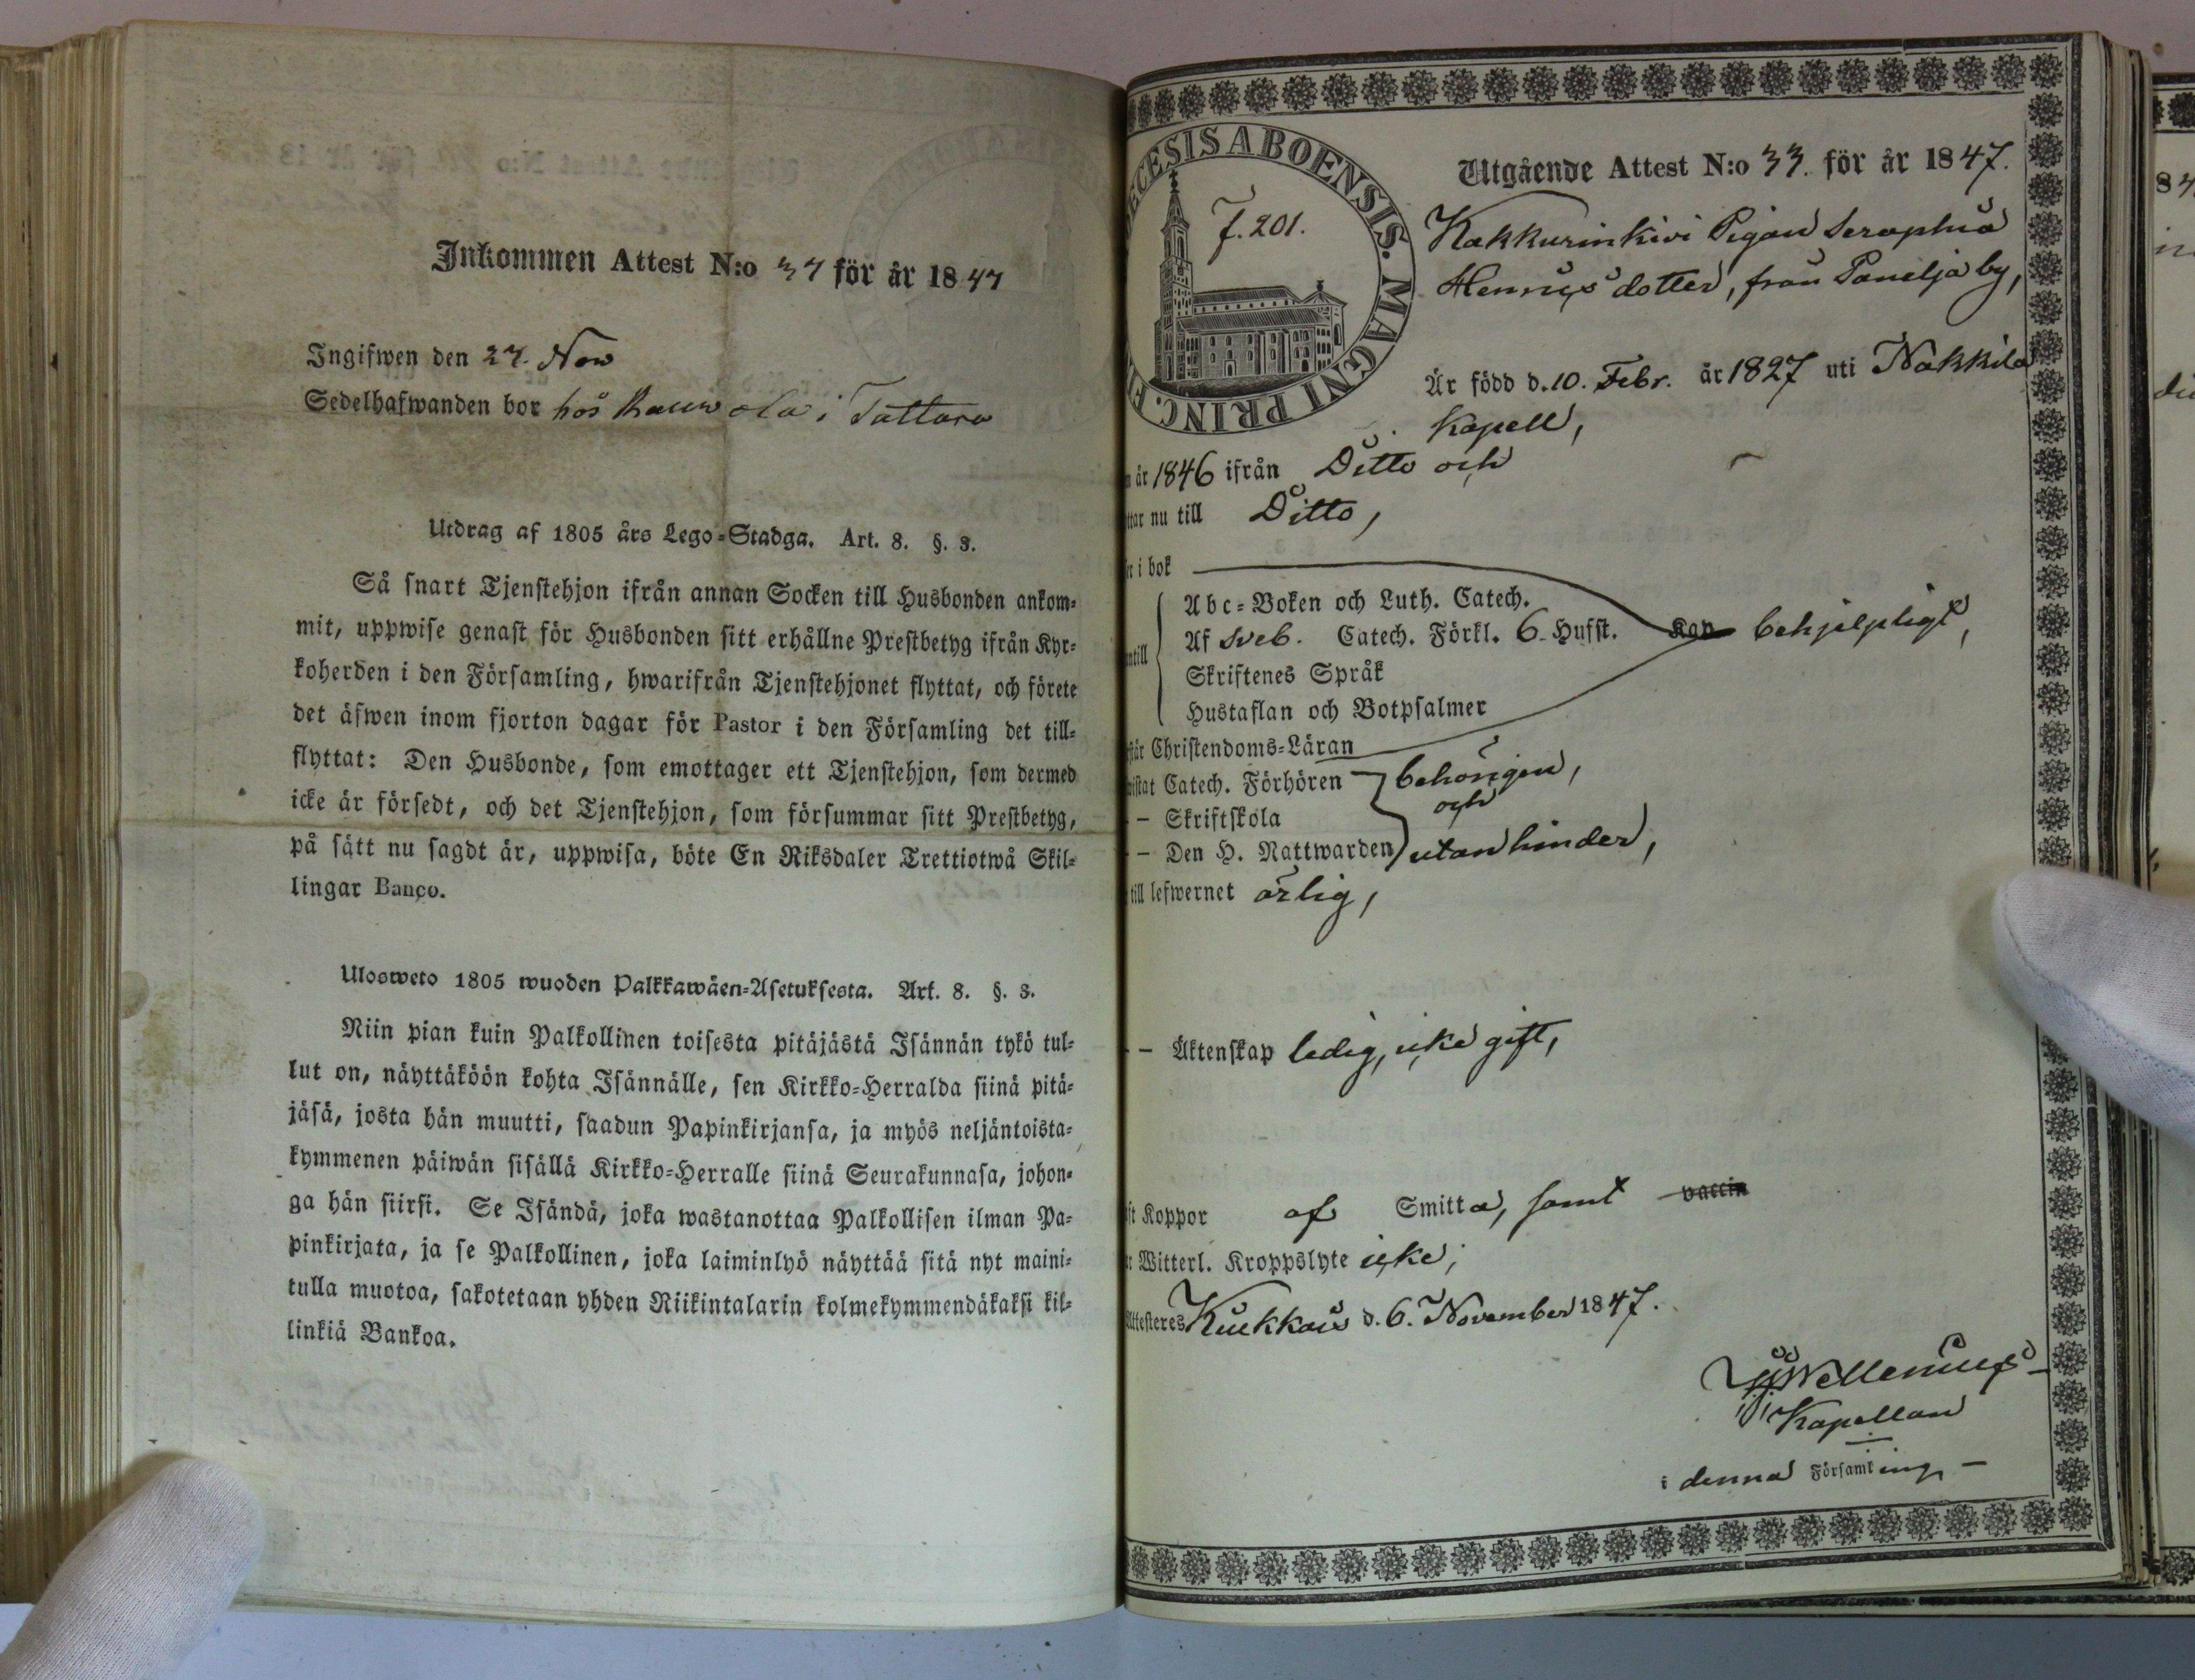 Inkommen Attest N:o 37 för år 1847
Ingifwen den 27. Nov
Sedelhafwanden bor hos i Tattara
Utdrag af 1805 års Lego-Stadga. Art. 8. §. 3.
Så snart Tjenstehjon ifrån annan Socken till Husbonden ankom-
mit, uppwise genast för Husbonden sitt erhållne Prestbetyg ifrån Kyr-
koherden i den Församling, hwarifrån Tjenstehjonet flyttat, och förete
det äfwen inom fjorton dagar för Pastor i den Församling det till-
flyttat: Den Husbonde, som emottager ett Tjenstehjon, som dermed
icke är försedt, och det Tjenstehjon, som försummar sitt Prestbetyg,
på sätt nu sagdt är, uppwisa, böte En Riksdaler Trettiotwå Skil-
lingar Banco.
Ulosweto 1805 wuoden Palkkawäen-Asetuksesta. Art. 8. §. 3.
Niin pian kuin Palkollinen toisesta pitäjästä Isännän tykö tul-
lut on, näyttäköön kohta Isännälle, sen Kirkko-Herralda siinä pitä-
jäsä, josta hän muutti, saadun Papinkirjansa, ja myös neljäntoista-
kymmenen päiwän sisällä Kirkko-Herralle siinä Seurakunnasa, johon-
ga hän siirsi. Se Isändä, joka wastanottaa Palkollisen ilman Pa-
pinkirjata, ja se Palkollinen, joka laiminlyö näyttää sitä nyt maini-
tulla muotoa, sakotetaan yhden Riikintalarin kolmekymmendäkaksi kil-
linkiä Bankoa.
ECESIS ABOENSIS. MAGNI PRINC. F
f. 201.
Utgående Attest N:o 33. för år 1847.
Kakkurinkivi Pigan Seraphia
Henricsdotter, från Panelja by,
Är född d. 10. Febr. år 1827 uti Nakkila
Kapell,
år 1846 ifrån Ditto och
ttar nu till Ditto,
er i bok
Abc-Boken och Luth. Catech.
Af Sveb. Catech. Förkl. 6 Hufst. Kan behjelpligt,
ntill
Skriftenes Språk
Hustaflan och Botpsalmer
står Christendoms-Läran
wistat Catech. Förhören behörigen,
och
— Skriftskola
— Den H. Nattwarden utan hinder,
till lefwernet ärlig,
— Äktenskap ledig, icke gift,
ft Koppor af Smitta, samt vaccin
r Witterl. Kroppslyte icke;
Attesteres Kiukkais d. 6. November 1847.
Wellenius
Kapellan
i denna Församling